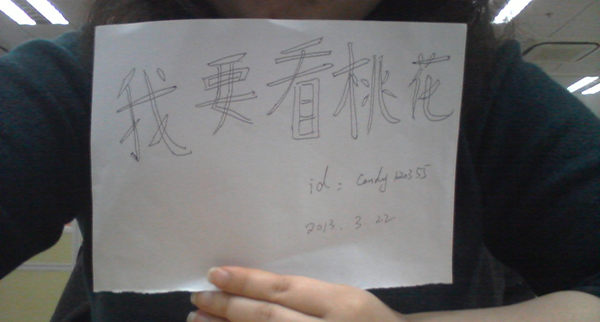 我要看桃花
id: Candy120355
2013.3.22